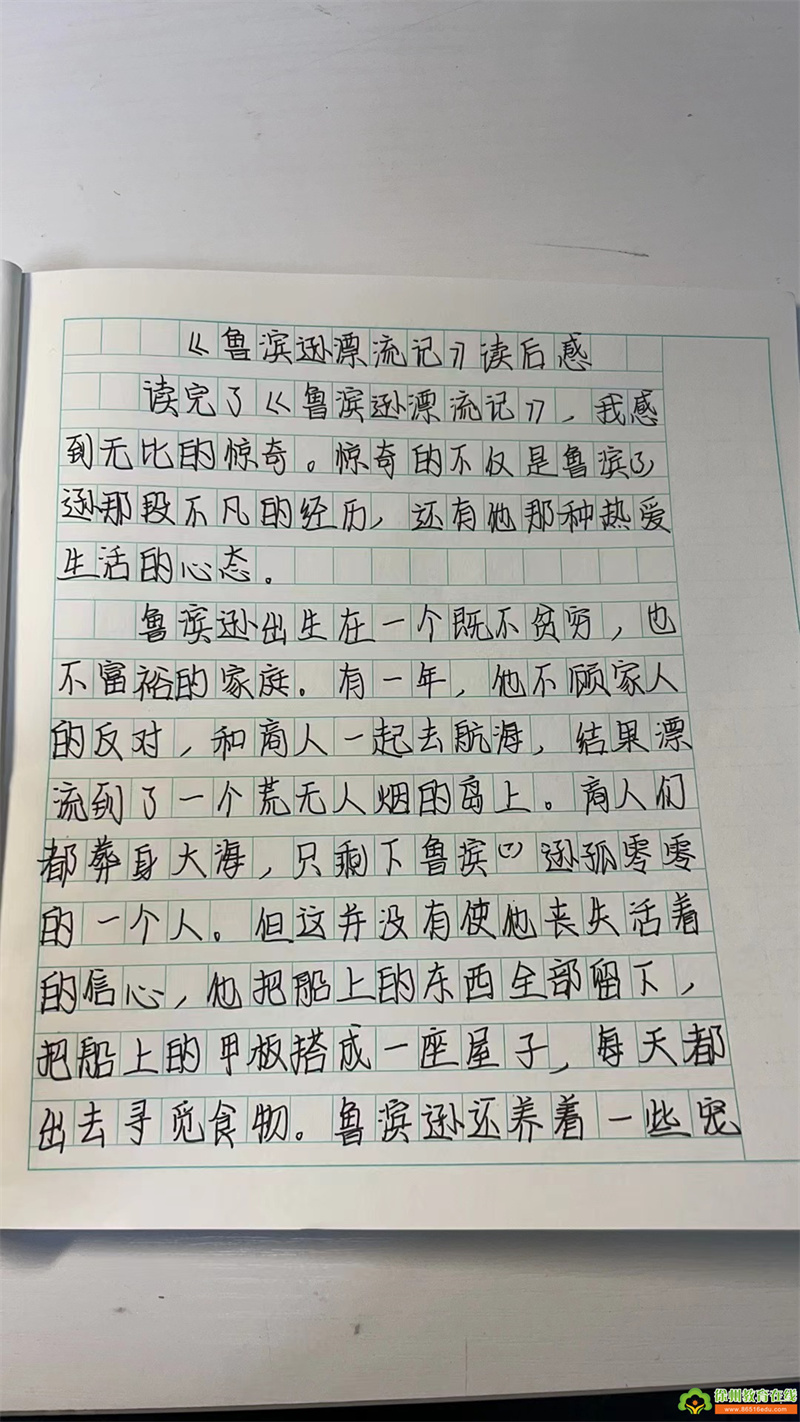 《鲁滨逊漂流记》读后感
读完了《鲁滨逊漂流记》，我感
到无比的惊奇。惊奇的不仅是鲁滨
逊那段不凡的经历，还有他那种热爱
生活的心态。
鲁滨逊出生在一个既不贫穷，也
不富裕的家庭。有一年，他不顾家人
的反对，和商人一起去航海，结果漂
流到了一个荒无人烟的岛上。商人们
都葬身大海，只剩下鲁滨逊孤零零
的一个人。但这并没有使他丧失活着
的信心，他把船上的东西全部留下，
把船上的甲板搭成一座屋子，每天都
出去寻觅食物。鲁滨逊还养着一些宠
徐州教育在线
www.86516edu.com